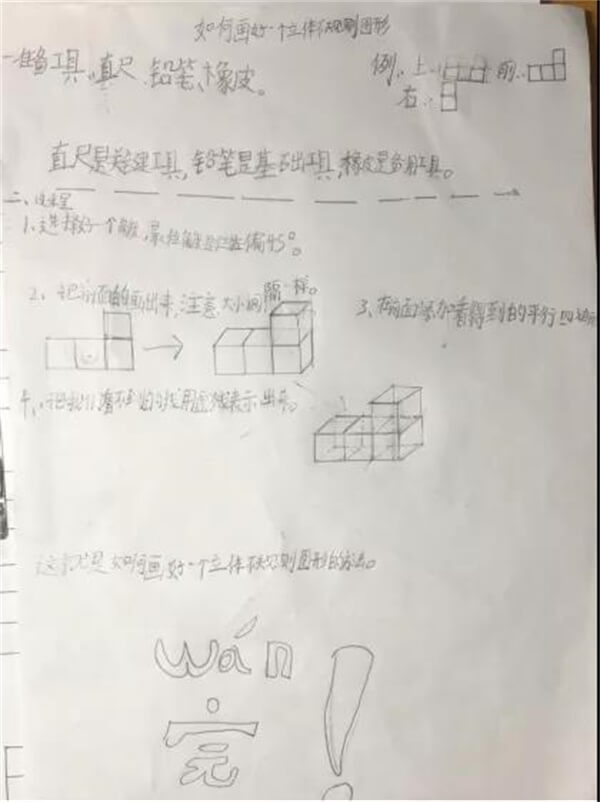 如何画好一个立体不规则图形
一准备工具,直尺、铅笔、橡皮。
例:上: 前:
右:
直尺是关键工具,铅笔是基石出工具,橡皮是备用工具。
二、过程
1、选择好一个角度,最 角度是 偏45°。
2、把前面的画出来,注意大小间隔一样。
3、在前面添加看得到的平行四边形
4、把我们看不到的 用虚线表示出来。
这就是如何画好一个立体不规则图形的方法。
wán
完!